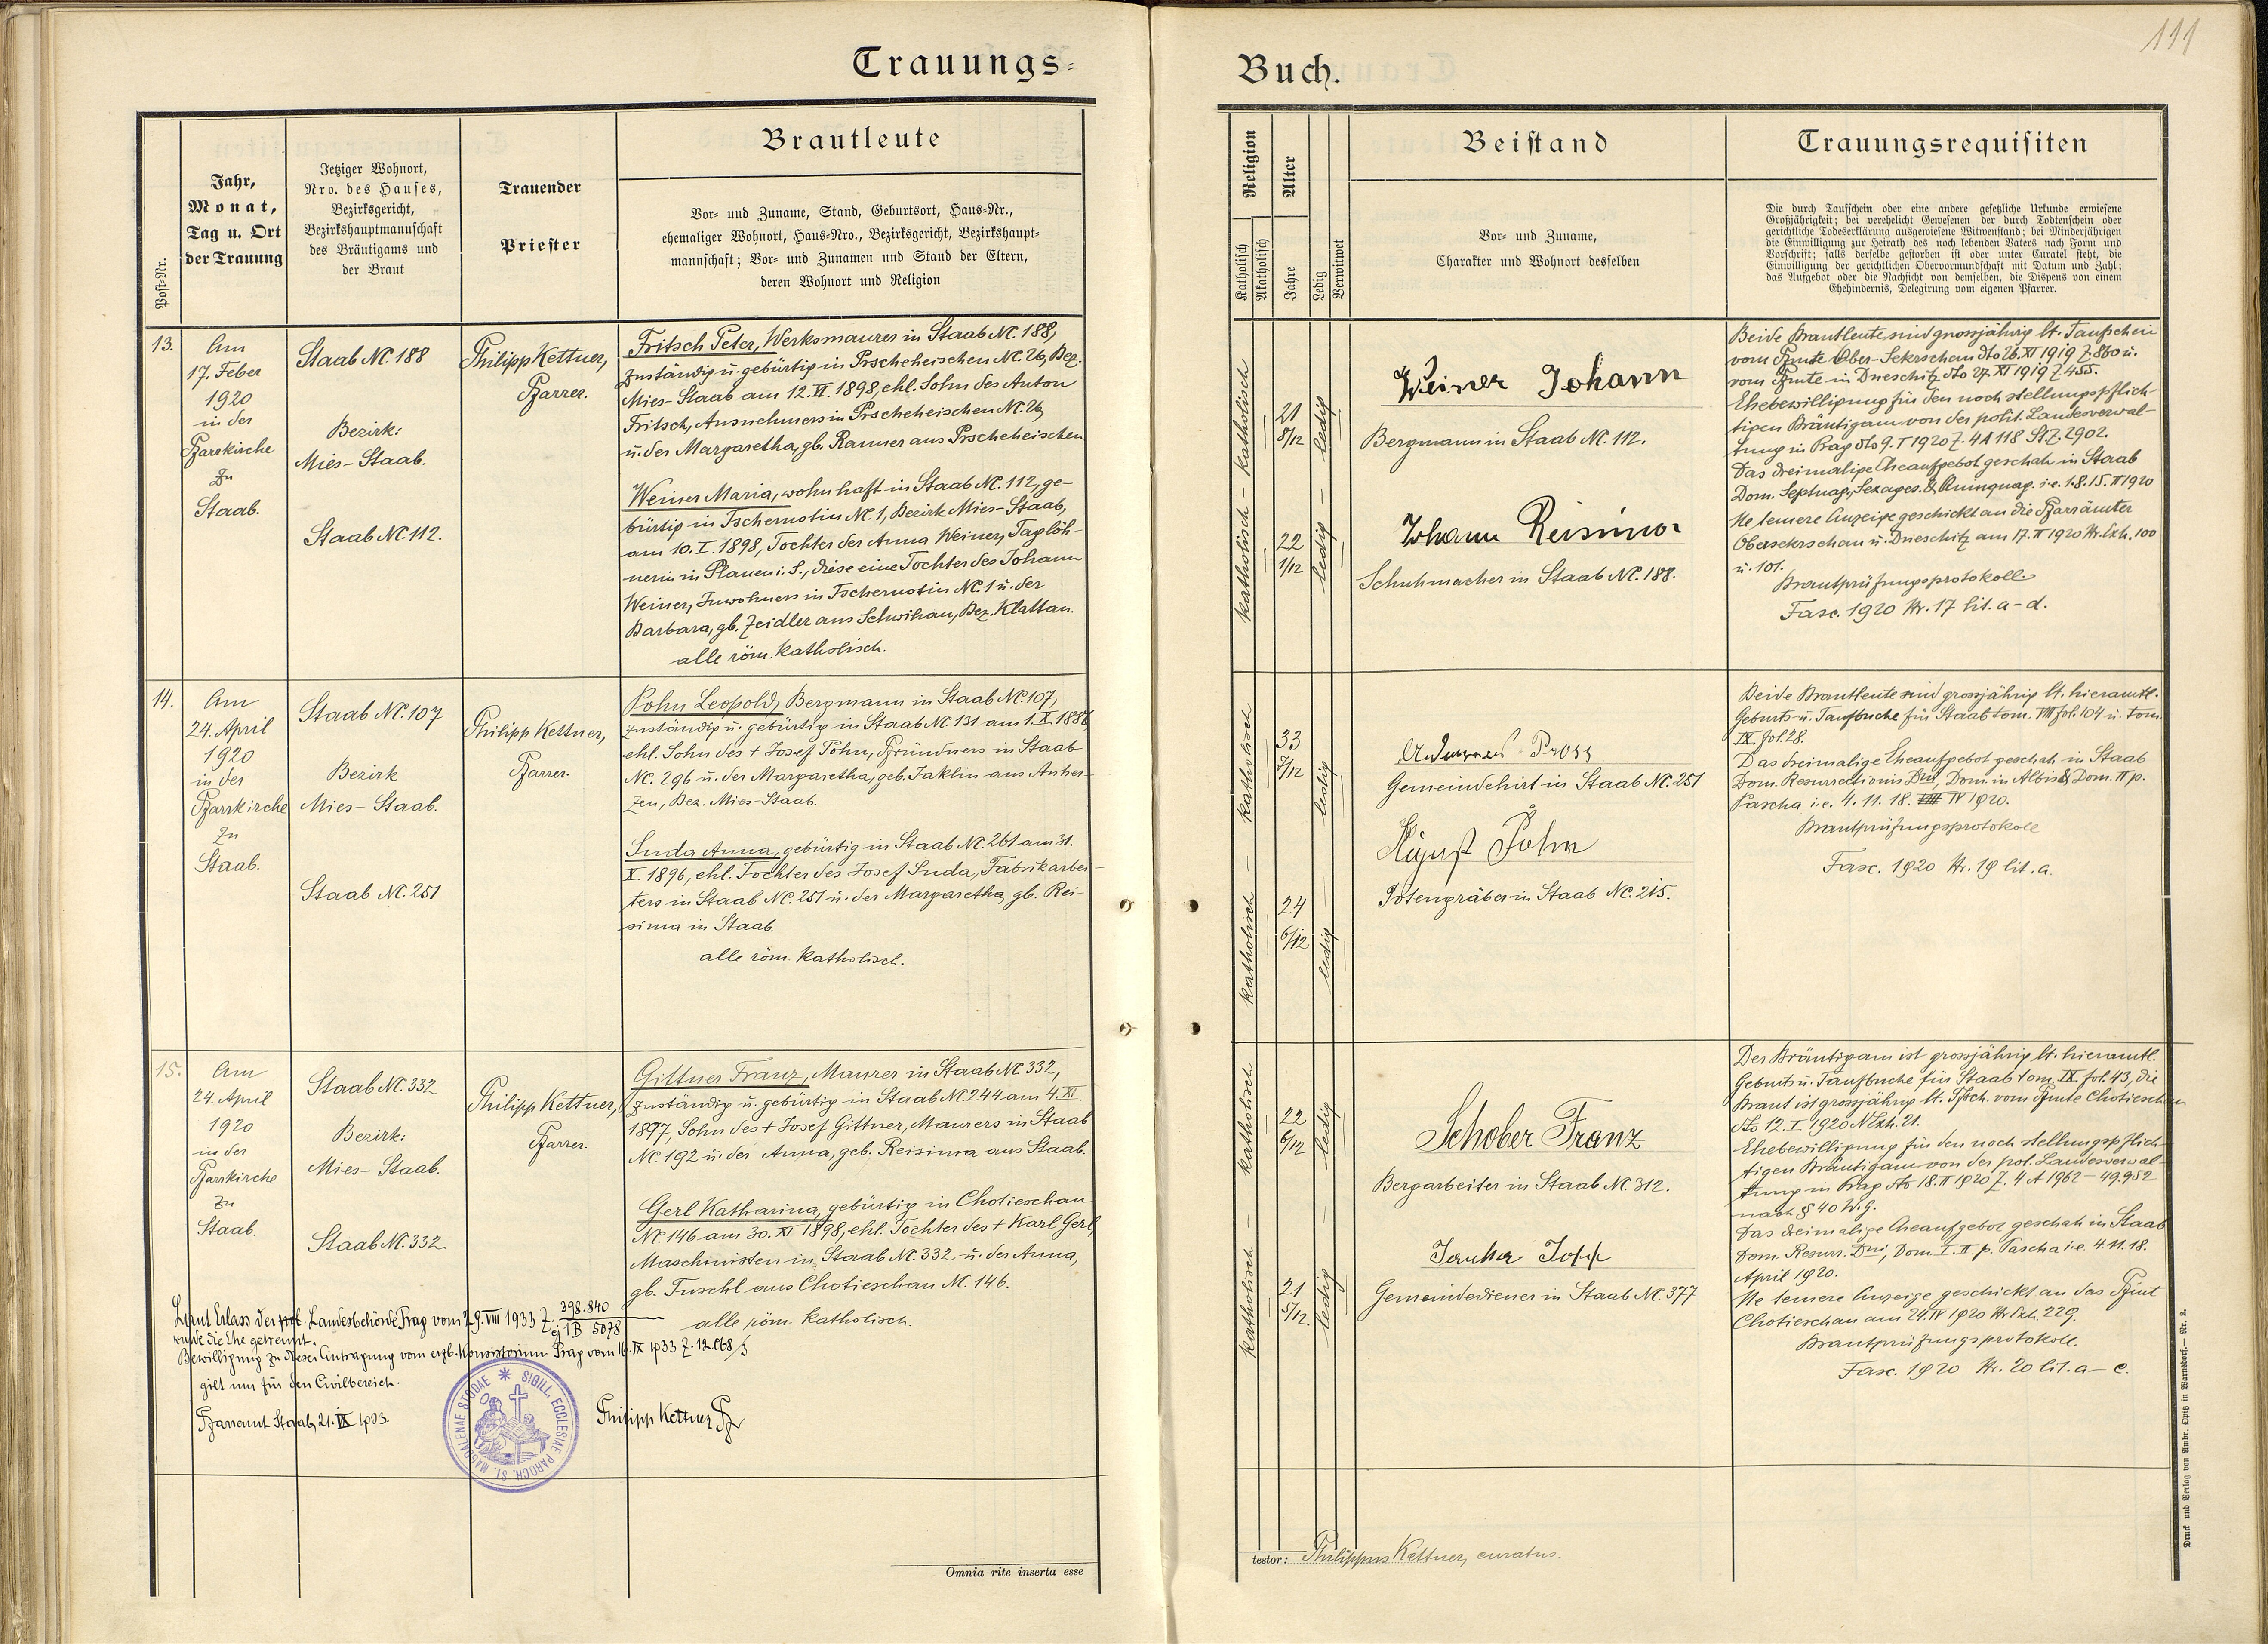 Trauungs-
Jahr,
Monat,
Tag u. Ort
der Trauung
Post-Nr.
Jetziger Wohnort,
Nro. des Hauses,
Bezirksgericht,
Bezirkshauptmannschaft
des Bräutigams und
der Braut
Trauender
Priester
Brautleute
Vor- und Zuname, Stand, Geburtsort, Haus-Nr.,
ehemaliger Wohnort, Haus-Nro., Bezirksgericht, Bezirkshaupt-
mannschaft; Vor- und Zunamen und Stand der Eltern,
deren Wohnort und Religion
13.
Am
17. Feber
1920
in der
Pfarrkirche
zu
Staab.
Staab NC. 188
Bezirk:
Mies-Staab.
Staab NC. 112.
Philipp Kettner,
Pfarrer.
Fritsch Peter, Werksmaurer in Staab NC. 188,
zuständig u. gebürtig in Prscheheischen NC. 26, Bez.
Mies-Staab am 12. VI. 1898, ehl. Sohn des Anton
Fritsch, Ausnehmers in Prscheheischen NC. 26,
u. der Margaretha, gb. Ranner aus Prscheheischen
Weiner Maria, wohnhaft in Staab NC. 112, ge-
bürtig in Tschernotin NC. 1, Bezirk Mies-Staab,
am 10. I. 1898, Tochter der Anna Weiner, Taglöh-
nerin in Plauen i. S., diese eine Tochter des Johann
Weiner, Inwohners in Tschernotin NC. 1 u. der
Barbara, gb. Zeidler aus Schwihau, Bez. Klattau.
alle röm. katholisch.
14.
Am
24. April
1920
in der
Pfarrkirche
zu
Staab.
Staab NC. 107
Bezirk
Mies-Staab.
Staab NC. 251
Philipp Kettner,
Pfarrer.
Pohn Leopold, Bergmann in Staab NC. 107,
zuständig u. gebürtig in Staab NC. 131 am 1. X. 1886,
ehl. Sohn des + Josef Pohn, Pfründners in Staab
NC. 296 u. der Margaretha, geb. Jaklin aus Anher-
zen, Bez. Mies-Staab.
Suda Anna, gebürtig in Staab NC. 261 am 31.
X. 1896, ehl. Tochter des Josef Suda, Fabrikarbei-
ters in Staab NC. 251 u. der Margaretha, gb. Rei-
sima in Staab.
alle röm. katholisch.
15.
Am
24. April
1920
in der
Pfarrkirche
zu
Staab.
Staab NC. 332
Bezirk:
Mies-Staab.
Staab NC. 332.
Philipp Kettner,
Pfarrer.
Gittner Franz, Maurer in Staab NC. 332,
zuständig u. gebürtig in Staab NC. 244 am 4. XI.
1897, Sohn des + Josef Gittner, Maurers in Staab
NC. 192 u. der Anna, geb. Reisima aus Staab.
Gerl Katharina, gebürtig in Chotieschau
NC. 146 am 30. XI 1898, ehl. Tochter des + Karl Gerl,
Maschinisten in Staab NC. 332 u. der Anna,
gb. Tuschl aus Chotieschau NC. 146.
alle röm. katholisch.
Laut Erlass der Landesbehörde Prag vom 29. VIII 1933 Z. 398.840
ej 1B 5078
wurde die Ehe getrennt.
Bewilligung zu dieser Eintragung vom erzb. Konsistorium Prag vom 16. IX 1933 Z. 12.068
gilt nur für den Civilbereich.
Pfarramt Staab, 21. IX 1933.
Philipp Kettner Pf
SIGILL. ECCLESIAE PAROCH. ST. MAGDALENAE STODAE
Omnia rite inserta esse
111
Buch.
Religion
Katholisch
Akatholisch
Alter
Jahre
Ledig
Verwitwet
Beistand
Vor- und Zuname,
Charakter und Wohnort desselben
Trauungsrequisiten
Die durch Taufschein oder eine andere gesetzliche Urkunde erwiesene
Großjährigkeit; bei verehelicht Gewesenen der durch Todtenschein oder
gerichtliche Todeserklärung ausgewiesene Witwenstand; bei Minderjährigen
die Einwilligung zur Heirath des noch lebenden Vaters nach Form und
Vorschrift; falls derselbe gestorben ist oder unter Curatel steht, die
Einwilligung der gerichtlichen Obervormundschaft mit Datum und Zahl;
das Aufgebot oder die Nachsicht von demselben, die Dispens von einem
Ehehindernis, Delegirung vom eigenen Pfarrer.
katholisch - katholisch
21
8/12
ledig
22
1/12
ledig
Weiner Johann
Bergmann in Staab NC. 112.
Johann Reisima
Schuhmacher in Staab NC. 188.
Beide Brautleute sind grossjährig lt. Taufschein
vom Pfmte Ober-Sekrschan dto 26. XI 1919 Z. 860 u.
vom Pfmte in Dneschitz dto 27. XI 1919 Z. 455.
Ehebewilligung für den noch stellungspflich-
tigen Bräutigam von der polit. Landesverwal-
tung in Prag dto 9. I 1920 Z. 4A 118 StZ. 2902.
Das dreimalige Eheaufgebot geschah in Staab
Dom. Septuag., Sexages. & Quinquag. i.e. 1. 8. 15. II 1920
Ne temere Anzeige geschickt an die Pfarrämter
Obersekrschan u. Dneschitz am 17. II 1920 Nr. Exh. 100
u. 101.
Brautprüfungsprotokoll
Fasc. 1920 Nr. 17 lit. a-d.
katholisch - katholisch
33
ledig
24
6/12
ledig
Gemeindehirt in Staab NC. 251
August Pohn
Totengräber in Staab NC. 215.
Beide Brautleute sind grossjährig lt. hieramtl.
Geburts- u. Taufbuche für Staab tom. VIII fol. 104 u. tom.
IX. fol. 28.
Das dreimalige Eheaufgebot geschah in Staab
Dom. Resurrectionis Dni, Dom. in Albis & Dom. II p.
Pascha i.e. 4. 11. 18. IV 1920.
Brautprüfungsprotokoll
Fasc. 1920 Nr. 19 lit. a.
katholisch - katholisch
22
6/12
ledig
21
5/12.
ledig
Schober Franz
Bergarbeiter in Staab NC. 312.
Gemeindediener in Staab NC. 377
Der Bräutigam ist grossjährig lt. hieramtl.
Geburts u. Taufbuche für Staab tom. IX. fol. 43, die
Braut ist grossjährig lt. Tfsch. vom Pfmte Chotieschau
dto 12. I. 1920 NExh. 21.
Ehebewilligung für den noch stellungspflich-
tigen Bräutigam von der pol. Landesverwal-
tung in Prag dto 18. II 1920 Z. 4 A 1962 - 49.952
nach § 40 W.G.
Das dreimalige Eheaufgebot geschah in Staab
Dom. Resurr. Dni, Dom. I. II p. Pascha i.e. 4. 11. 18.
April 1920.
Ne temere Anzeige geschickt an das Pfmt
Chotieschau am 24. IV 1920 Nr. Exh. 229.
Brautprüfungsprotokoll.
Fasc. 1920 Nr. 20 lit. a-c.
testor: Philippus Kettner, curatus.
Druck und Verlag von Ambr. Opitz in Warnsdorf. - Nr. 2.